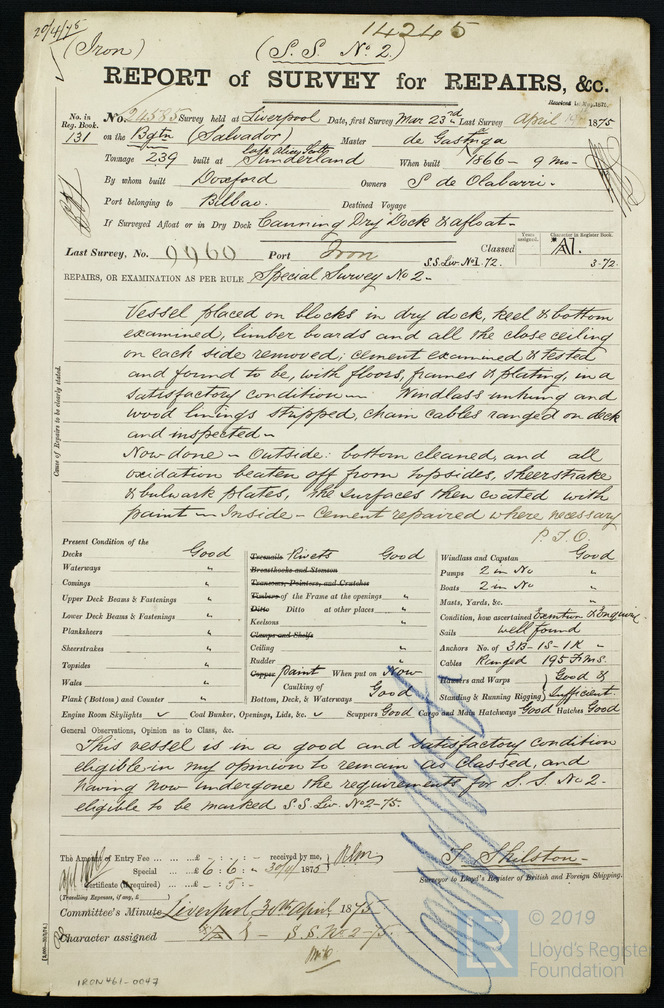 20/4/75
14245
(Iron)
(S.S. No. 2.)
REPORT of SURVEY for REPAIRS, &c.
No. in Reg. Book. 131
No. 24585 Survey held at Liverpool Date, first Survey Mar 23rd Last Survey April 19th 1875
on the Bgtn (Salvador) Master de Gastuga
late Alice Scott
Tonnage 239 built at Sunderland When built 1866 - 9 mo -
By whom built Doxford Owners S de Olabarri -
Port belonging to Bilbao. Destined Voyage
If Surveyed Afloat or in Dry Dock Canning Dry Dock & afloat -
Years assigned. Character in Register Book.
Last Survey, No. 9960 Port Iron Classed *A1.
S.S. Liv. No1. 72. 3-72.
REPAIRS, OR EXAMINATION AS PER RULE Special Survey No 2 -
Cause of Repairs to be clearly stated.
Vessel placed on blocks in dry dock, keel & bottom
examined, limber boards and all the close ceiling
on each side removed; cement examined & tested
and found to be, with floors, frames & plating, in a
satisfactory condition - Windlass unhung and
wood linings stripped, chain cables ranged on deck
and inspected -
Now done - Outside: bottom cleaned, and all
oxidation beaten off from topsides, sheerstrake
& bulwark plates, the surfaces then coated with
paint - Inside - Cement repaired where necessary
P.T.O.
Present Condition of the
Decks Good
Waterways "
Comings "
Upper Deck Beams & Fastenings "
Lower Deck Beams & Fastenings "
Planksheers "
Sheerstrakes "
Topsides "
Wales "
Plank (Bottom) and Counter "
Treenails Rivets Good
Breasthooks and Stemson
Transoms, Pointers, and Crutches
Timbers of the Frame at the openings "
Ditto Ditto at other places "
Keelsons "
Clamps and Shelfs
Ceiling "
Rudder "
Copper Paint When put on Now
Caulking of Bottom, Deck, & Waterways Good
Windlass and Capstan Good
Pumps 2 in No "
Boats 2 in No "
Masts, Yards, &c. "
Condition, how ascertained Exmtion & Enquiry.
Sails well found
Anchors No. of 3B-1S-1K "
Cables Ranged 195 Fms.
Hawsers and Warps
Standing & Running Rigging Good & Sufficient
Engine Room Skylights ✓ Coal Bunker, Openings, Lids, &c. ✓ Scuppers Good Cargo and Main Hatchways Good Hatches Good
General Observations, Opinion as to Class, &c.
This vessel is in a good and satisfactory condition
eligible in my opinion to remain as classed, and
having now undergone the requirements for S.S. No 2 -
eligible to be marked S.S. Liv. No 2-75.
The Amount of Entry Fee ... £ - : - : - received by me,
Special ... £ 6 : 6 : - 30/4/1875
Certificate (if required) £ - : 5 : -
(Travelling Expenses, if any, £ )
T. Shilston -
Surveyor to Lloyd's Register of British and Foreign Shipping.
Committee's Minute Liverpool, 30th April, 1875
Character assigned S.S. No 2-75.
IRON461-0047
© 2019
LR
Lloyd's Register
Foundation